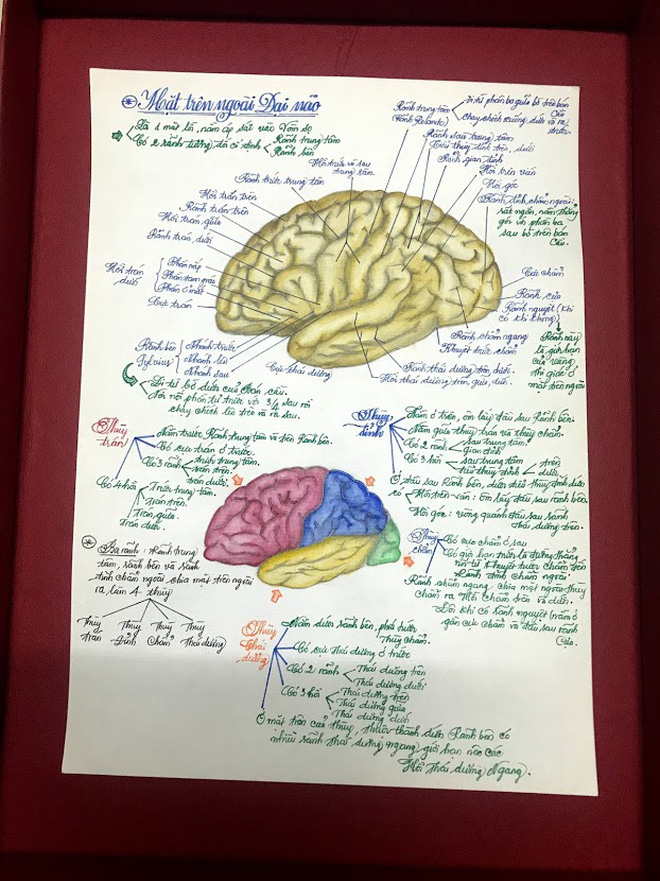 * Mặt trên ngoài Đại não
Là 1 mặt lồi, nằm áp sát vào Vòm sọ
Có 2 rãnh tường đối cố định
Rãnh trung tâm
Rãnh bên
Rãnh trung tâm
(Rãnh Rolando)
Đi từ phần ba giữa bờ trên bán cầu
chạy chếch xuống dưới và ra trước.
Rãnh sau trung tâm
Tiểu thùy đỉnh trên, dưới
Rãnh gian đỉnh
Hồi trên viền
Hồi góc
Rãnh đỉnh chẩm ngoài:
rất ngắn, nằm thẳng
góc với phần ba
sau bờ trên bán
Cầu.
Hồi trước và sau
trung tâm.
Rãnh trước trung tâm
Hồi trán trên
Rãnh trán trên
Hồi trán giữa
Rãnh trán dưới
Hồi trán
dưới
Phần nắp
Phần tam giác
Phần ổ mắt
Cực trán
Rãnh bên
Sylvius
Nhánh trước
Nhánh lên
Nhánh sau
Cực thái dương
Cực chẩm
Rãnh cựa
Rãnh nguyệt (khi
có khi không)
Rãnh này
là giới hạn
của vùng
thị giác ở
mặt trên ngoài
Rãnh chẩm ngang
Khuyết trước chẩm
Rãnh thái dương trên, dưới.
Hồi thái dương trên, giữa, dưới.
Đi từ bờ dưới của bán cầu.
Tới nối phần tư trước với 3/4 sau rồi
chạy chếch lên trên và ra sau.
Thùy
trán
Nằm trước Rãnh trung tâm và trên Rãnh bên.
Có cực trán ở trước.
Có 3 rãnh
trước trung tâm.
trán trên.
trán dưới.
Có 4 hồi
Trước trung tâm.
Trán trên.
Trán giữa.
Trán dưới.
Thùy
đỉnh
Nằm ở trên, ôm lấy đầu sau Rãnh bên.
Nằm giữa thùy trán và thùy chẩm.
Có 2 rãnh
sau trung tâm.
gian đỉnh
Có 3 hồi
sau trung tâm
tiểu thùy đỉnh
trên
dưới
Ở đầu sau Rãnh bên, dưới tiểu thùy đỉnh dưới
có
Hồi trên viền: ôm lấy đầu sau rãnh bên.
Hồi góc: vòng quanh đầu sau rãnh
Thái dương trên.
Thùy
chẩm
Có cực chẩm ở sau
Có giới hạn trước là đường thẳng
nối từ Khuyết trước chẩm đến
Rãnh đỉnh chẩm ngoài
Rãnh chẩm ngang chia mặt ngoài thùy
chẩm ra Hồi Chẩm trên và dưới.
Đôi khi có Rãnh nguyệt (nằm ở
gần cực chẩm và đầu sau rãnh
Cựa.
* Ba rãnh: Rãnh trung
tâm, rãnh bên và rãnh
đỉnh chẩm ngoài chia mặt trên ngoài
ra làm 4 thùy
Thùy
trán
Thùy
Đỉnh
Thùy
Chẩm
Thùy
Thái dương
Thùy
thái
dương
Nằm dưới rãnh bên, phía trước
Thùy chẩm.
Có cực Thái dương ở trước
Có 2 rãnh
Thái dương trên
Thái dương dưới
Có 3 hồi
Thái dương trên
Thái dương giữa
Thái dương dưới
Ở mặt trên của thùy, thuộc thành dưới Rãnh bên có
nhiều rãnh thái dương ngang giới hạn nên các
Hồi Thái dương Ngang.